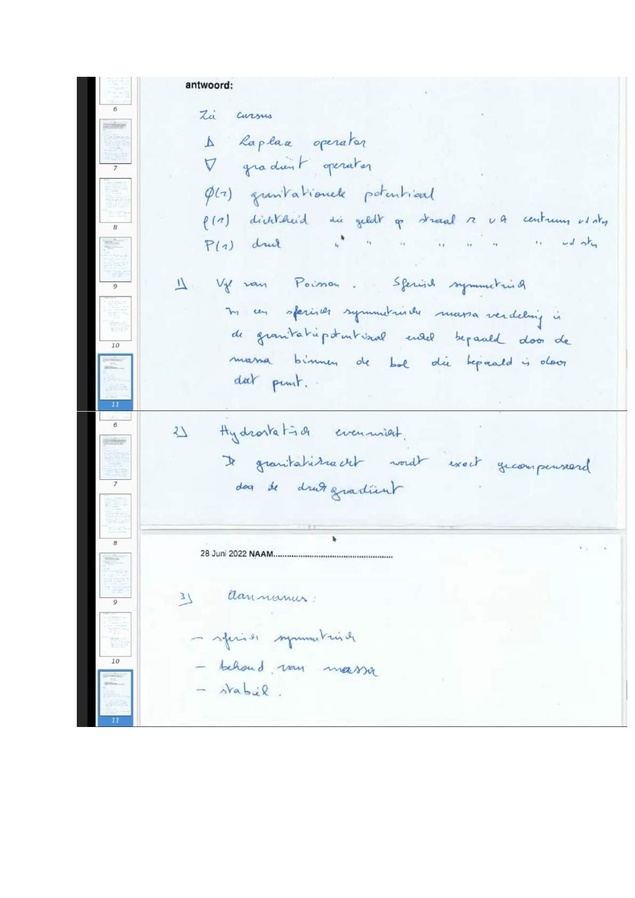 antwoord:
Zie cursus
Δ Laplace operator
∇ gradiënt operator
φ(r) gravitationele potentiaal
ρ(r) dichtheid die geldt op straal r v/h centrum vd ster
P(r) druk " " " " " " " vd ster
1) Vgl van Poisson. Sferisch symmetrisch
In een sferisch symmetrische massa verdeling is
de gravitatiepotentiaal enkel bepaald door de
massa binnen de bol die bepaald is door
dat punt.
2) Hydrostatisch evenwicht.
De gravitatiekracht wordt exact gecompenseerd
door de drukgradiënt
28 Juni 2022 NAAM......................................................
3) Aannames:
- sferisch symmetrisch
- behoud van massa
- stabiel.
6
7
8
9
10
11
6
7
8
9
10
11